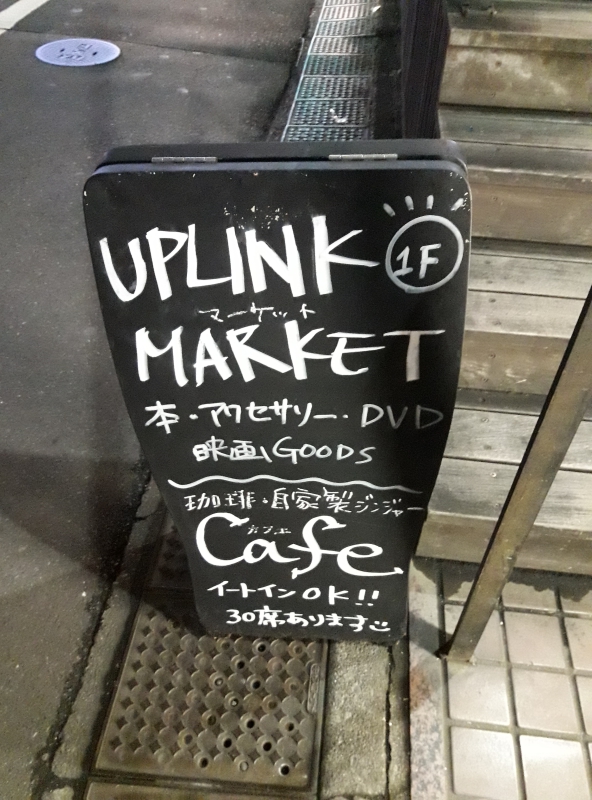 UPLINK 1F
マーケット
MARKET
本・アクセサリー・DVD
映画GOODS
珈琲・自家製ジンジャー
カフェ
Cafe
イートインOK!!
30席あります